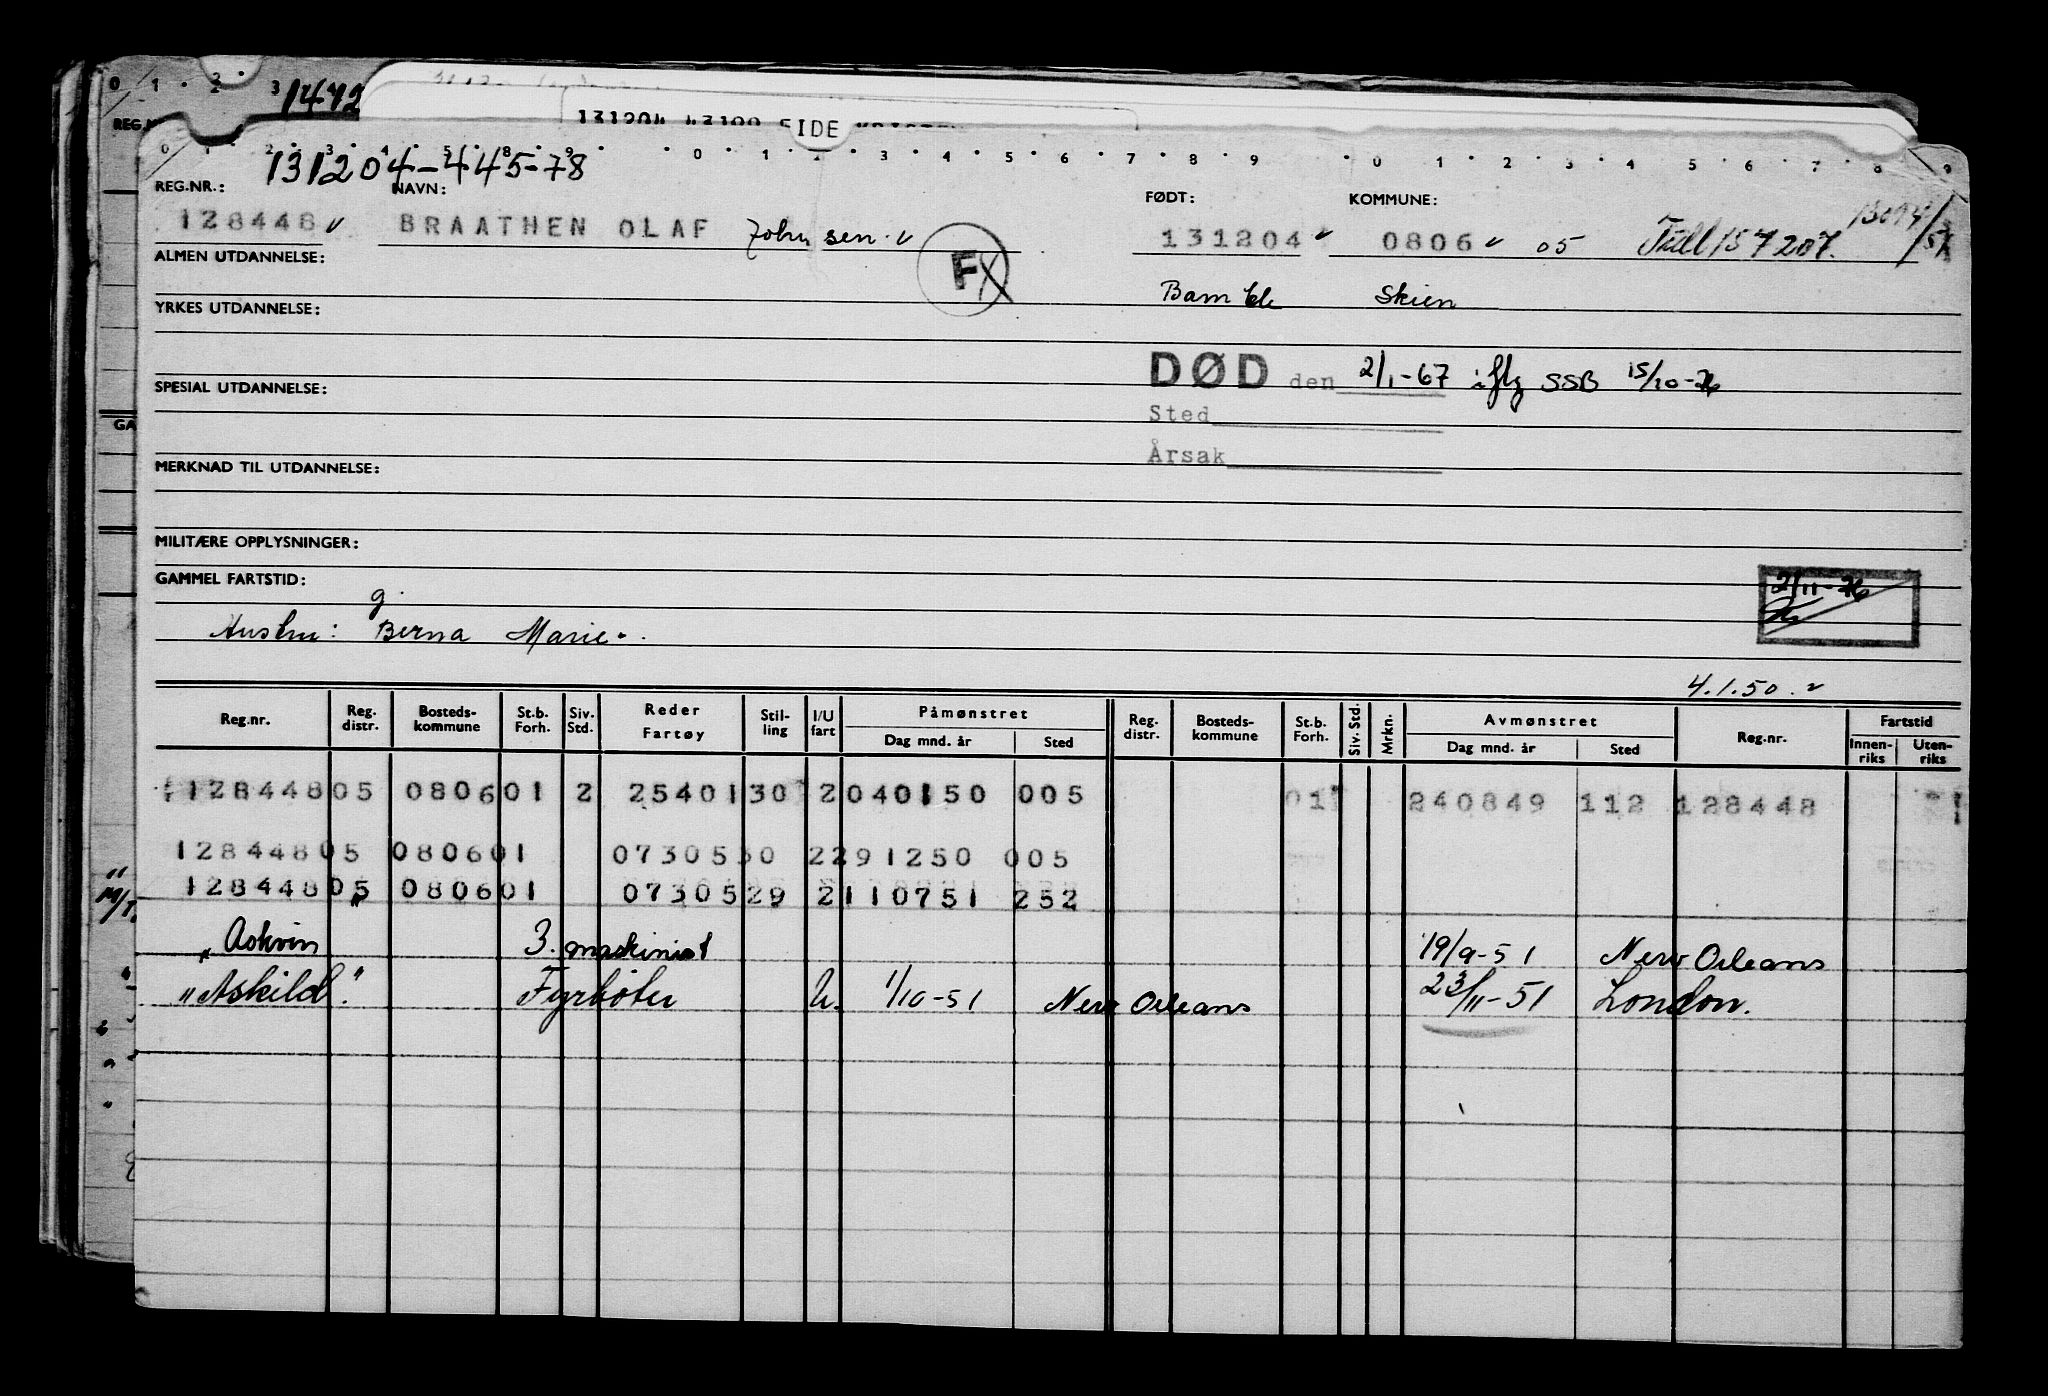 0 1 2 3 1472
131204 43199 SIDE
0 1 2 3 4 5 8 9 0 1 2 3 4 5 6 7 8 9 0 1 2 3 4 5 6 7 8 9
131204-445-78
REG.NR.: NAVN: FØDT: KOMMUNE:
128448 v BRAATHEN OLAF Johnsen. v 131204 v 0806 v 05 Tidl 157207.
ALMEN UTDANNELSE: FX
Bamble Skien
YRKES UTDANNELSE:
DØD den 2/1-67 iflg SSB 15/10-76
SPESIAL UTDANNELSE:
Sted
Årsak
MERKNAD TIL UTDANNELSE:
MILITÆRE OPPLYSNINGER:
GAMMEL FARTSTID: 2/11-76
g.
Hustru: Berna Marie.
4.1.50. v
Reg.nr. Reg. distr. Bosteds-kommune St.b. Forh. Siv. Std. Reder Fartøy Stil-ling I/U fart Påmønstret Dag mnd. år Sted Reg. distr. Bosteds-kommune St.b. Forh. Siv. Std. Mrkn. Avmønstret Dag mnd. år Sted Reg.nr. Fartstid Innen-riks Uten-riks
128448 05 0806 01 2 25401 30 2 040150 005 01 240849 112 128448
128448 05 0806 01 07305 30 2 291250 005
128448 05 0806 01 07305 29 2 110751 252
"Askvin 3. maskinist 19/9-51 New Orleans
"Askild." Fyrbøter U. 1/10-51 New Orleans 23/11-51 London.